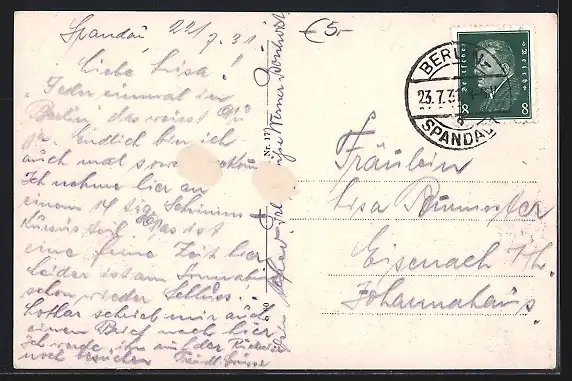 Spandau, 22/7.31.
Liebe Lisa!
"Jeder einmal in
Berlin" das weisst Du
ja. Endlich bin ich
auch mal soweit
Ich nehme hier an
einem 14 tg. Schwimm
kursus teil. Das ist
eine feine Zeit hier
leider ist am Sonnabend
schon wieder Schluss!
Lothar schrieb mir auch
einen Brief nach hier.
Ich werde ihn auf der
noch besuchen Freundl. Grüsse
Werner
Nr. 17
€5,-
BERLIN
23.7.31
SPANDAU
Deutsches Reich
8 8
Fräulein
Lisa
Eisenach Th.
Johannahaus